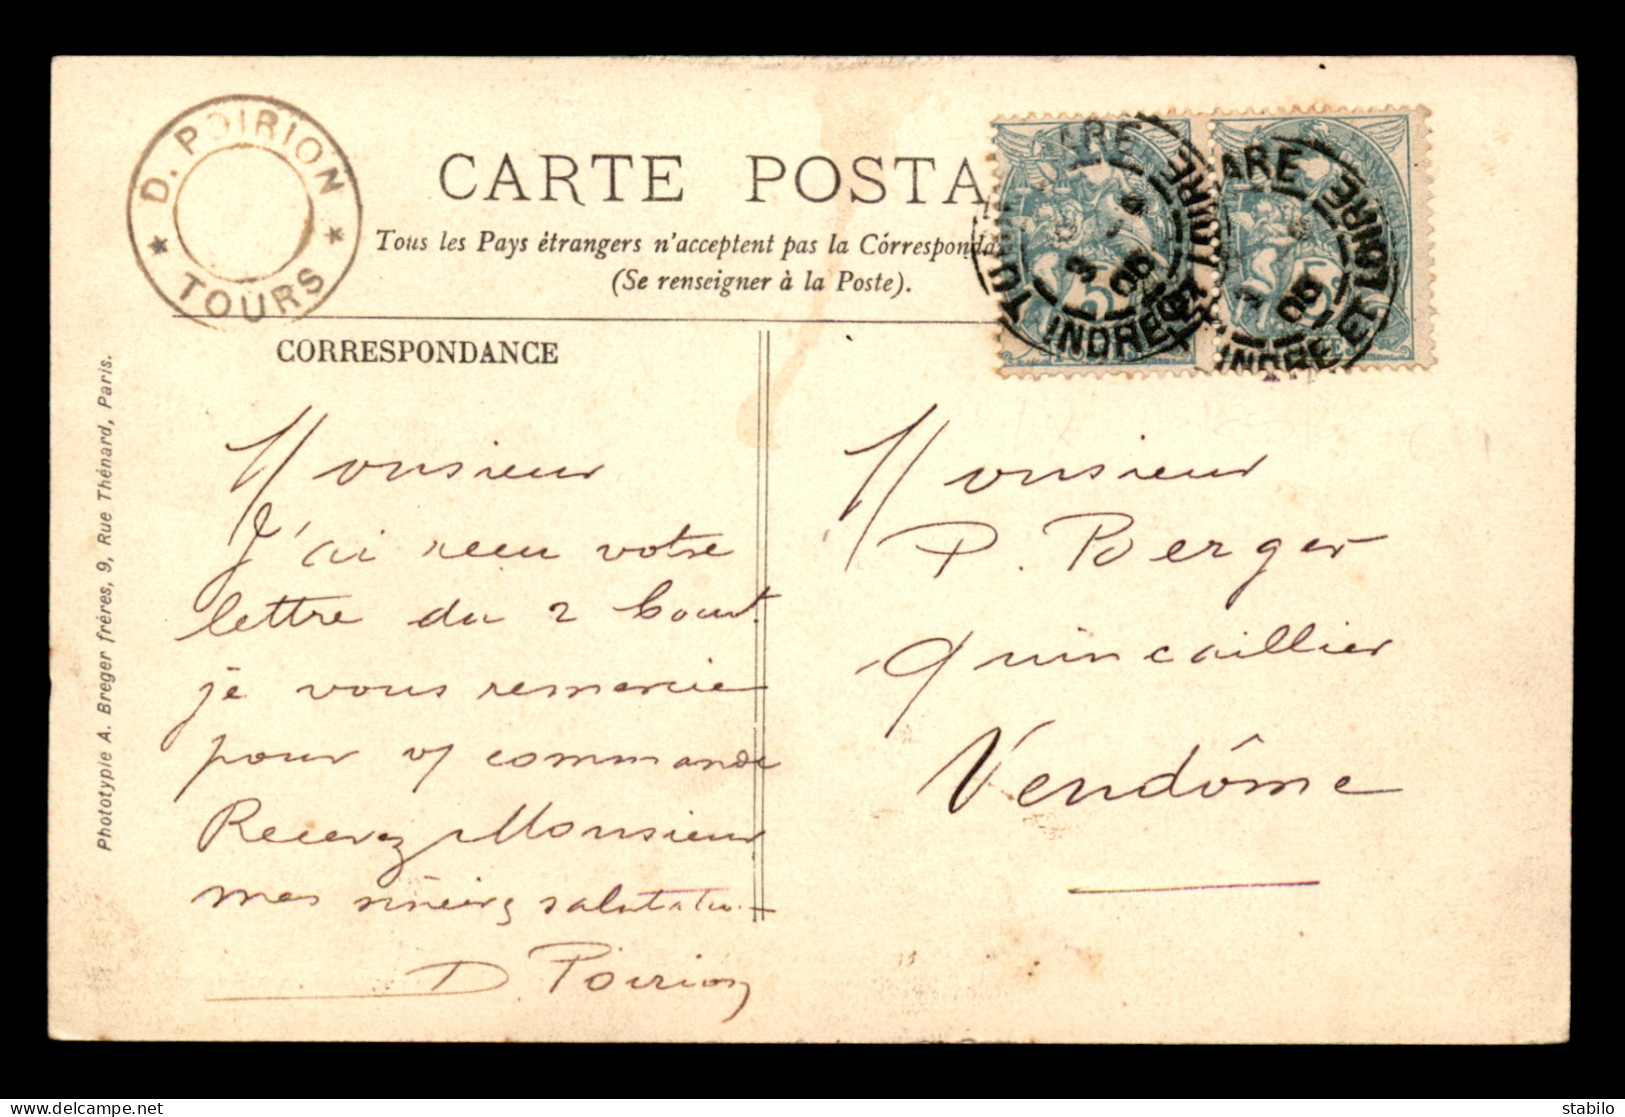 D. POIRION
★ TOURS ★
CARTE POSTA
Tous les Pays étrangers n'acceptent pas la Córresponda
(Se renseigner à la Poste).
CORRESPONDANCE
Monsieur
J'ai recu votre
lettre du 2 Court
je vous remercie
pour v/ commande
Recevez Monsieur
mes sincères salutation
D Poirion
Monsieur
P. Berger
Quincaillier
Vendôme
ARE
INDRE ET LOIRE
3
06
5
ARE
INDRE ET LOIRE
06
5
Phototypie A. Breger frères, 9, Rue Thénard, Paris.
stabilo